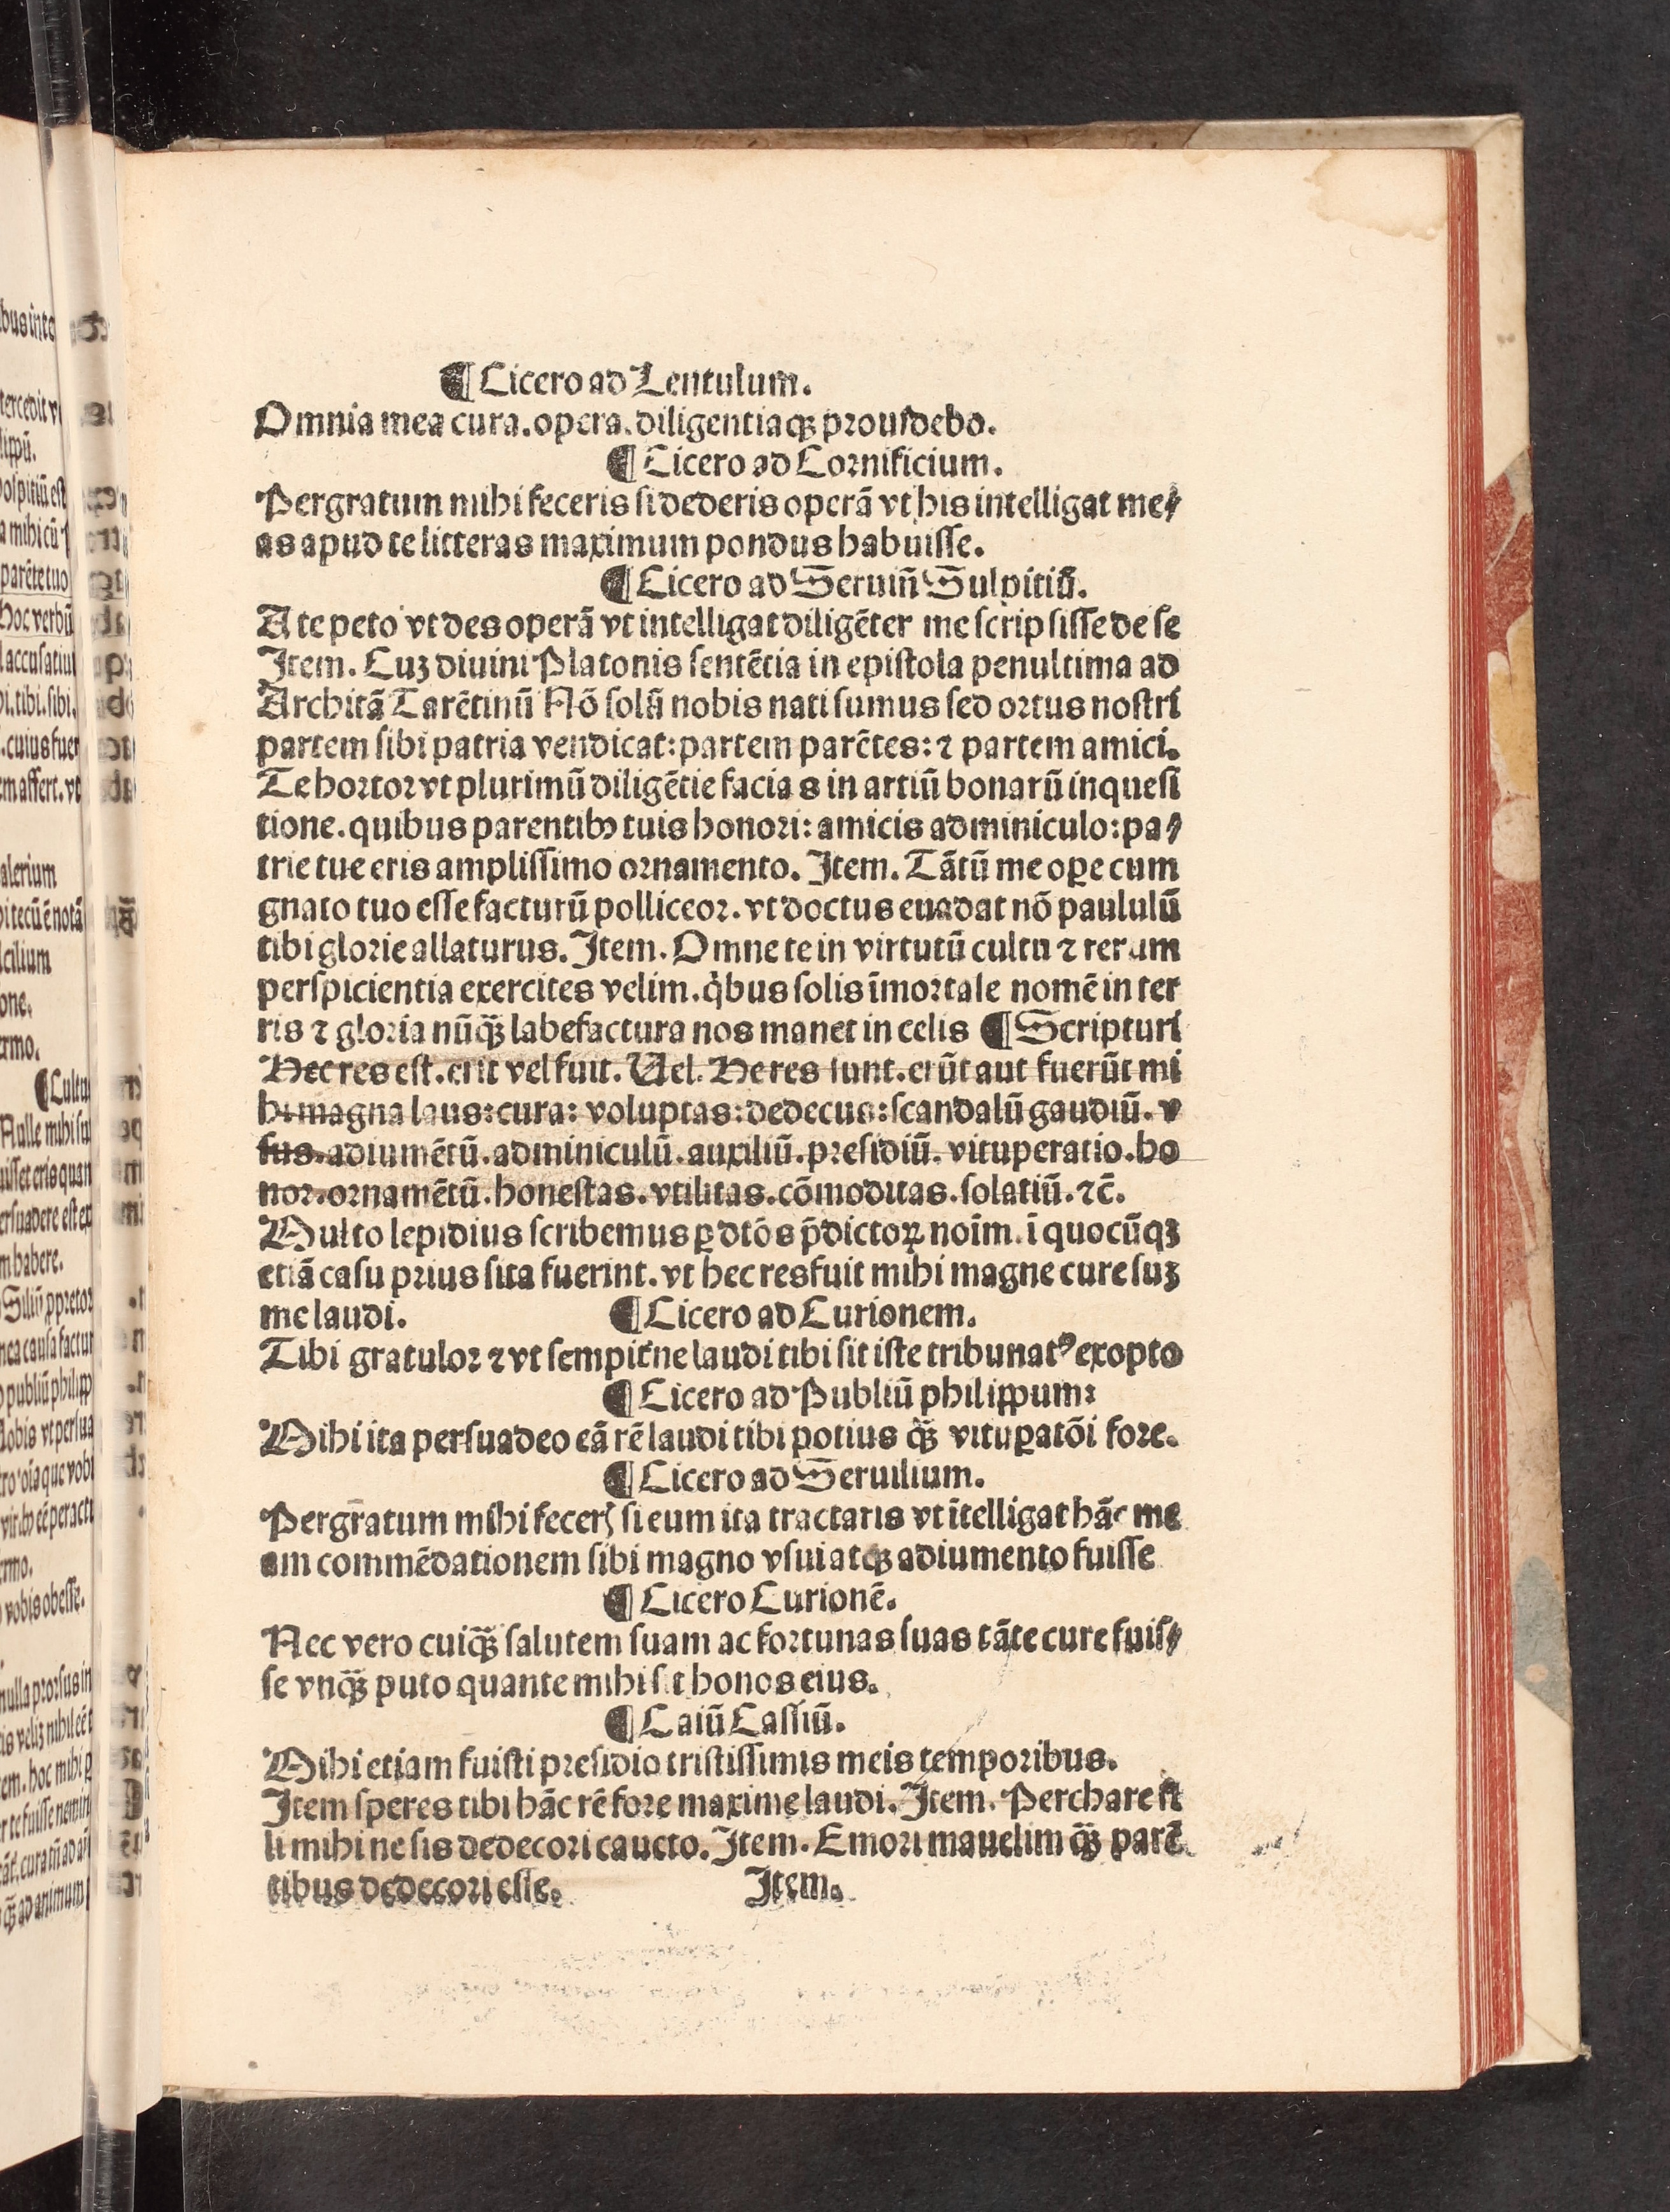 ¶ Cicero ad Lentulum.
Omnia mea cura. opera. diligentiaqȝ prouidebo.
¶ Cicero ad Cornificium.
Pergratum mihi feceris si dederis operā vt his intelligat me⸗
as apud te litteras maximum pondus habuisse.
¶ Cicero ad Seruiū Sulpitiū.
A te peto vt des operā vt intelligat diligēter me scripsisse de se
Item. Cuȝ diuini Platonis sentētia in epistola penultima ad
Architā Tarētinū Nō solū nobis nati sumus sed ortus nostri
partem sibi patria vendicat: partem parētes: ⁊ partem amici.
Te hortor vt plurimū diligētie facias in artiū bonarū inquesi
tione. quibus parentibꝰ tuis honori: amicis adminiculo: pa⸗
trie tue eris amplissimo ornamento. Item. Tātū me oꝑe cum
gnato tuo esse facturū polliceor. vt doctus euadat nō paululū
tibi glorie allaturus. Item. Omne te in virtutū cultu ⁊ rerum
perspicientia exercites velim. q̇bus solis īmortale nomē in ter
ris ⁊ gloria nūq̄ȝ labefactura nos manet in celis ¶ Scripturi
Hec res est. erit vel fuit. Vel. He res sunt. erūt aut fuerūt mi
hi magna laus: cura: voluptas: dedecus: scandalū gaudiū. v
sus. adiumētū. adminiculū. auxiliū. presidiū. vituperatio. ho
nor. ornamētū. honestas. vtilitas. cōmoditas. solatiū. ⁊c̄.
Multo lepidius scribemus ꝑ dtōs p̄dictoꝝ noīm. ī quocūqȝ
etiā casu prius sita fuerint. vt hec res fuit mihi magne cure suȝ
me laudi. ¶ Cicero ad Curionem.
Tibi gratulor ⁊ vt sempit̄ne laudi tibi sit iste tribunatꝰ exopto
¶ Cicero ad Publiū philippum:
Mihi ita persuadeo eā rē laudi tibi potius q̄ȝ vituꝑatōi fore.
¶ Cicero ad Seruilium.
Pergr̄atum mihi fecerꝭ si eum ita tractaris vt ītelligat hāc me
am commēdationem sibi magno vsui atqȝ adiumento fuisse
¶ Cicero Curionē.
Nec vero cuiq̄ȝ salutem suam ac fortunas suas tāte cure fuis⸗
se vnq̄ȝ puto quante mihi sit honos eius.
¶ Caiū Cassiū.
Mihi etiam fuisti presidio tristissimis meis temporibus.
Item speres tibi hāc rē fore maxime laudi. Item. Perchare fi
li mihi ne sis dedecori caueto. Item. Emori mauelim q̄ȝ parē
tibus dedecori esse. Item.